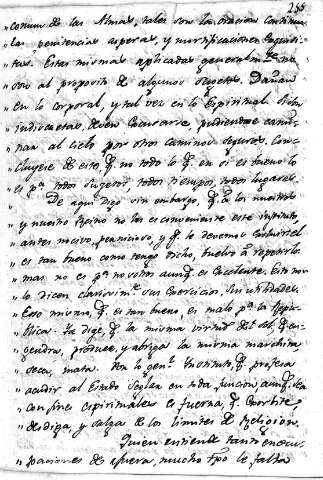 255
comun de las Almas, tales son la oracion continua
" las penitencias asperas, y mortificaciones exquisi-
" tas. Estas mismas aplicadas generalm.te no
" son al proposito de algunos sugetos. Dañan
" en lo corporal, y tal vez en lo Espiritual. Si son
" indiscretas, deven escusarse, pudiendose cami-
" nar al cielo por otros caminos seguros. Con-
" cluyese de esto, q. no todo lo q. en si es bueno lo
" es p.a todos sugetos, todos tiempos, todos lugares.
" De aqui digo sin embargo, q. a los nuestros
" y nuestro Reino no les es conveniente este instituto,
" antes nocivo, pernicioso, y q. lo devemos excluir. El
" es tan bueno como tengo dicho, buelvo a repetirlo:
" mas no es p.a nosotros aunq. es Excelente. Esto nos
" lo dicen clarisim.te sus Exercicios, sus utilidades.
" Esto mismo, q. es tan bueno, es malo p.a la Repu-
" blica. Ya dige, q. la misma virtud del Sol, q. en-
" gendra, produce, y abriga la misma marchita
" seca, mata. Por lo gen.l Instituto, q. profesa
" acudir al Estado Seglar en toda funcion aunq. sea
" con fines espirituales es fuerza, q.
" desdiga, y salga de los limites de Religion.
" Quien entiende tanto en ocu-
" paciones de afuera, mucho tpo le falta